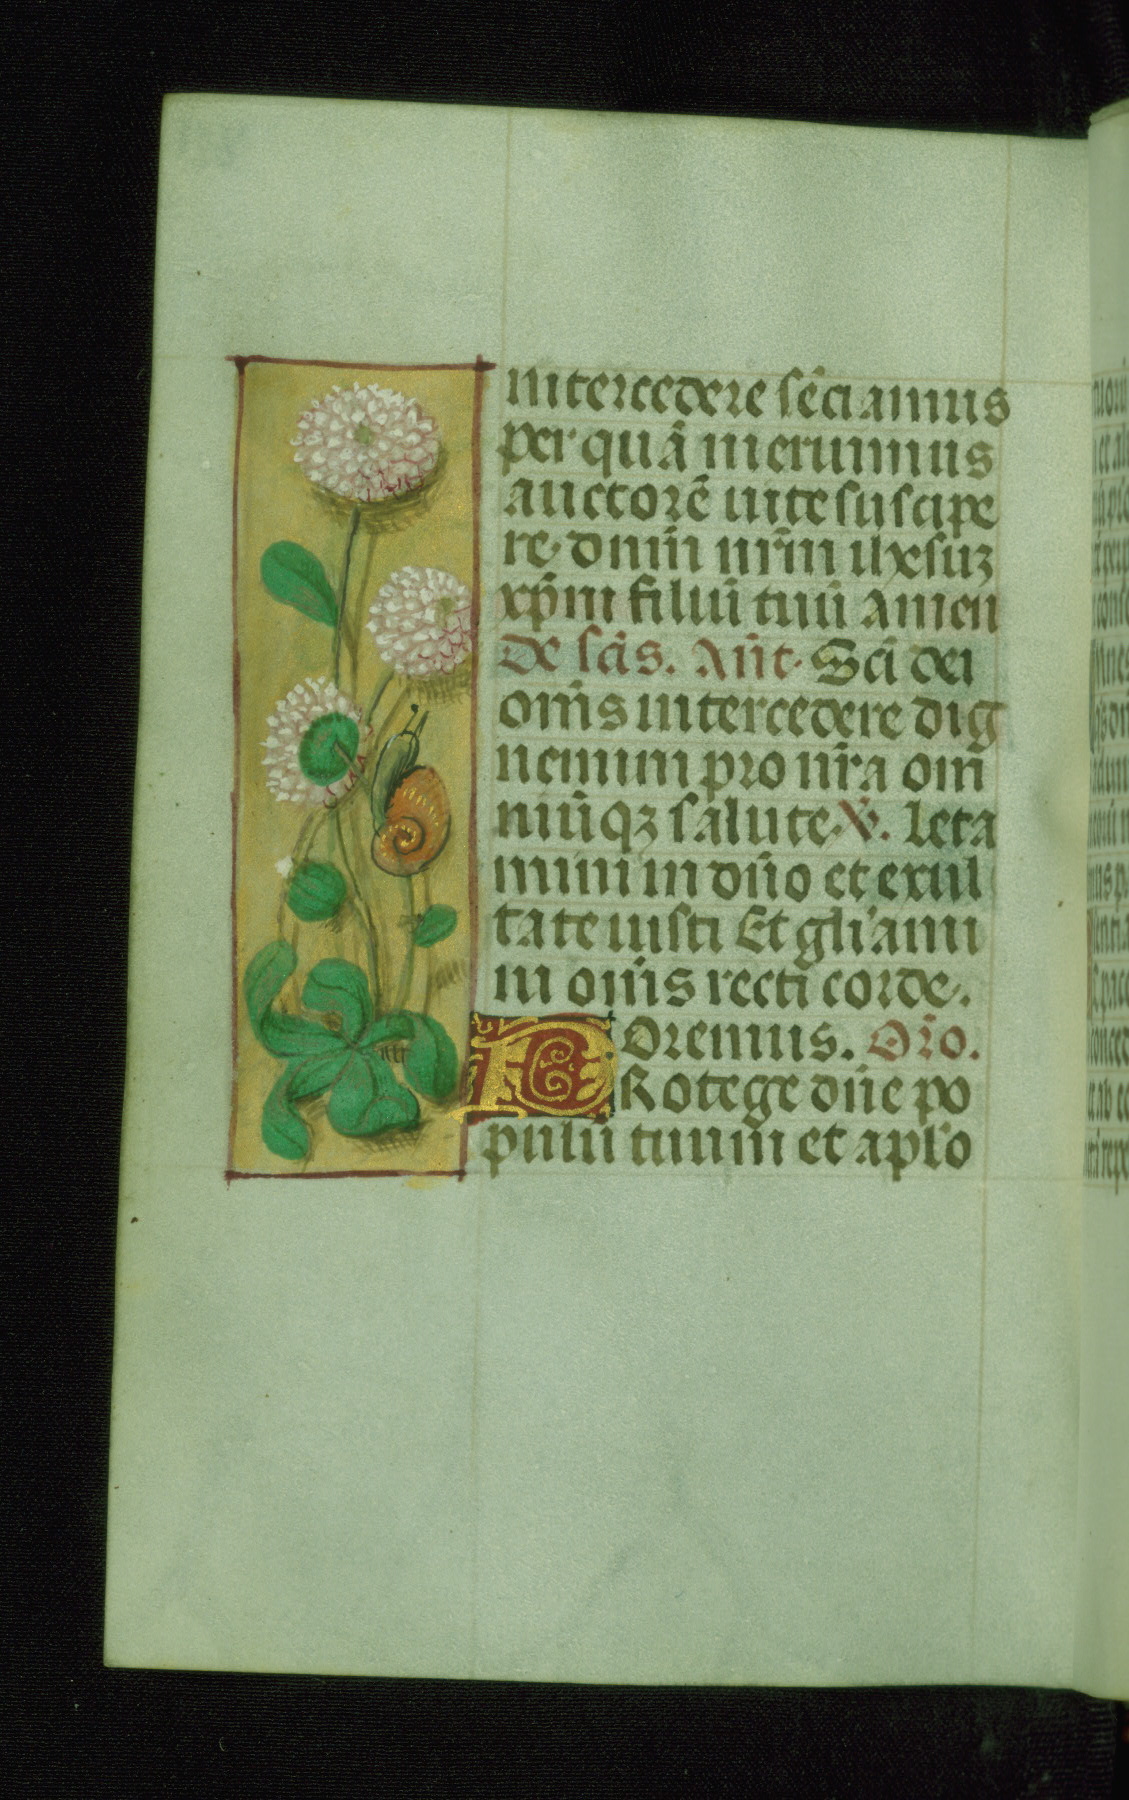 intercedere sēciamus
per quā meruimus
auctorē uite suscipe
re. dnm̄ nr̄m ihesuȝ
xp̄m filiū tuū Amen
De scīs. Añt. Scī dei
om̄s intercedere dig
nemini pro nr̄a om̄
niūqȝ salute. V. Leta
mini in dn̄o et exul
tate iusti Et gl̄iami
ni om̄s recti corde.
Oremus. Or̄o.
PRotege dn̄e po
pulū tuum et apl̄o